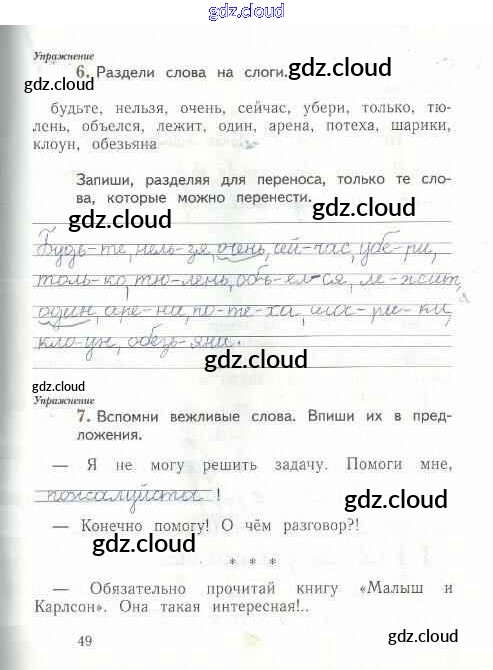 gdz.cloud
Упражнение
6. Раздели слова на слоги.
gdz.cloud
gdz.cloud
будьте, нельзя, очень, сейчас, убери, только, тю-
лень, объелся, лежит, один, арена, потеха, шарики,
клоун, обезьяна
Запиши, разделяя для переноса, только те сло-
ва, которые можно перенести.
gdz.cloud
gdz.cloud
Будь-те, нель-зя, очень, сей-час, убе-ри,
толь-ко, тю-лень, объ-ел-ся, ле-жит,
один, аре-на, по-те-ха, ша-ри-ки,
кло-ун, обезь-яна.
gdz.cloud
gdz.cloud
Упражнение
7. Вспомни вежливые слова. Впиши их в пред-
ложения.
— Я не могу решить задачу. Помоги мне,
пожалуйста !
gdz.cloud
— Конечно помогу! О чём разговор?!
gdz.cloud
* * *
— Обязательно прочитай книгу «Малыш и
Карлсон». Она такая интересная!..
49
gdz.cloud